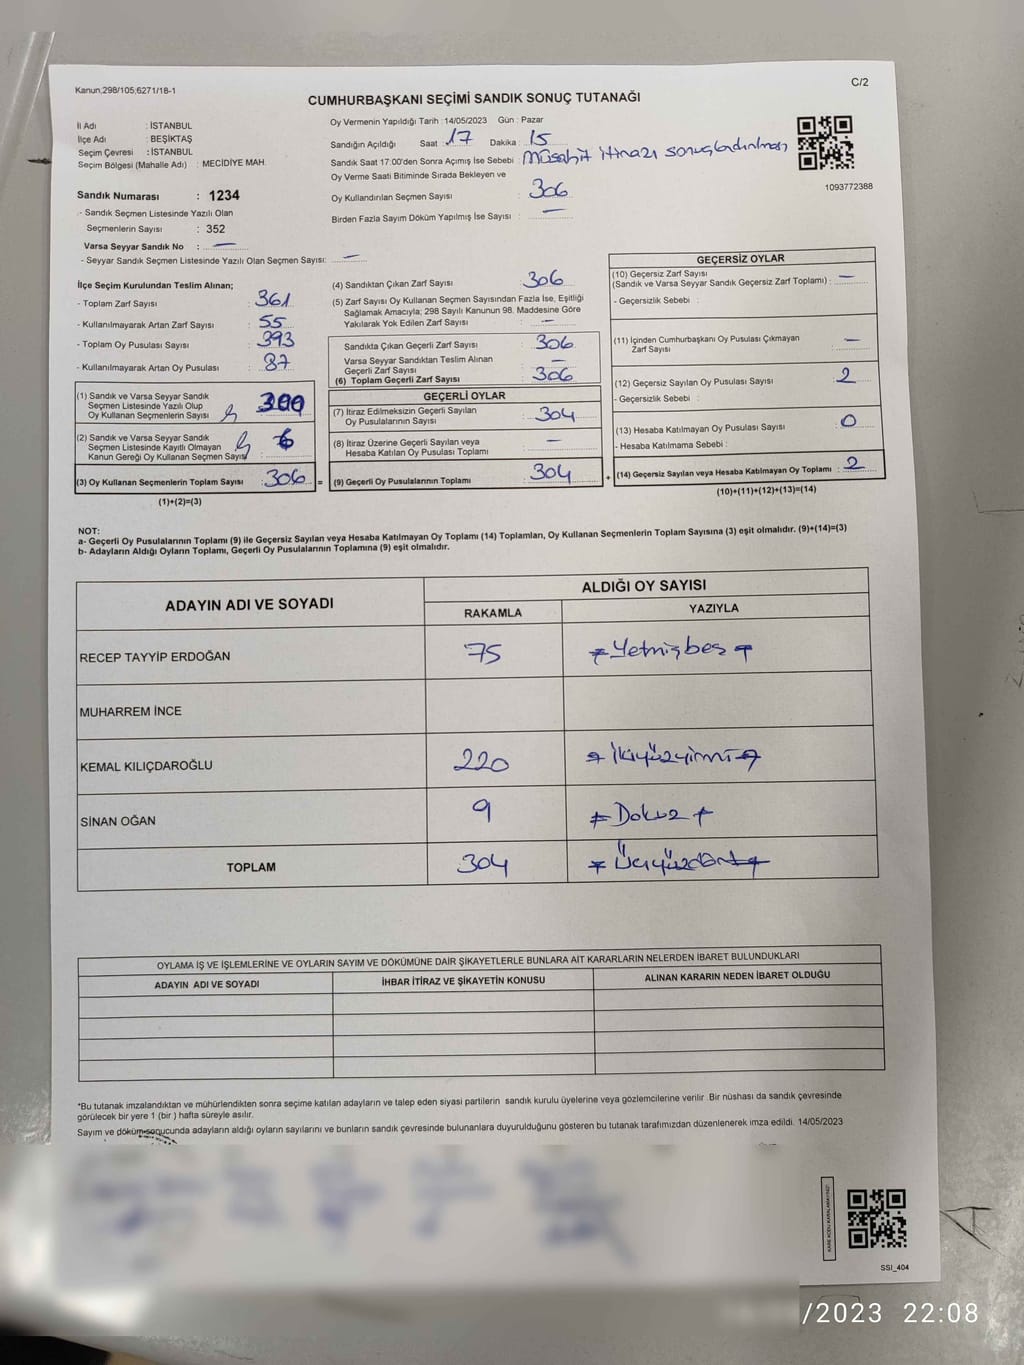 Kanun,298/105;6271/18-1
C/2
CUMHURBAŞKANI SEÇİMİ SANDIK SONUÇ TUTANAĞI
İl Adı : İSTANBUL
İlçe Adı : BEŞİKTAŞ
Seçim Çevresi : İSTANBUL
Seçim Bölgesi (Mahalle Adı) : MECİDİYE MAH.
Oy Vermenin Yapıldığı Tarih : 14/05/2023 Gün : Pazar
Sandığın Açıldığı Saat : 17 Dakika : 15
Sandık Saat 17:00'den Sonra Açımış İse Sebebi : Müşahit itirazı sonuçlandırılması
Oy Verme Saati Bitiminde Sırada Bekleyen ve
Oy Kullandırılan Seçmen Sayısı : 306
Birden Fazla Sayım Döküm Yapılmış İse Sayısı : —
1093772388
Sandık Numarası : 1234
- Sandık Seçmen Listesinde Yazılı Olan
Seçmenlerin Sayısı : 352
Varsa Seyyar Sandık No : —
- Seyyar Sandık Seçmen Listesinde Yazılı Olan Seçmen Sayısı: —
İlçe Seçim Kurulundan Teslim Alınan;
- Toplam Zarf Sayısı : 361
- Kullanılmayarak Artan Zarf Sayısı : 55
- Toplam Oy Pusulası Sayısı : 393
- Kullanılmayarak Artan Oy Pusulası : 87
(1) Sandık ve Varsa Seyyar Sandık
Seçmen Listesinde Yazılı Olup
Oy Kullanan Seçmenlerin Sayısı
(2) Sandık ve Varsa Seyyar Sandık
Seçmen Listesinde Kayıtlı Olmayan
Kanun Gereği Oy Kullanan Seçmen Sayısı : 6
(3) Oy Kullanan Seçmenlerin Toplam Sayısı : 306
(1)+(2)=(3)
=
(4) Sandıktan Çıkan Zarf Sayısı : 306
(5) Zarf Sayısı Oy Kullanan Seçmen Sayısından Fazla İse, Eşitliği
Sağlamak Amacıyla; 298 Sayılı Kanunun 98. Maddesine Göre
Yakılarak Yok Edilen Zarf Sayısı : —
Sandıkta Çıkan Geçerli Zarf Sayısı : 306
Varsa Seyyar Sandıktan Teslim Alınan
Geçerli Zarf Sayısı : —
(6) Toplam Geçerli Zarf Sayısı : 306
GEÇERLİ OYLAR
(7) İtiraz Edilmeksizin Geçerli Sayılan
Oy Pusulalarının Sayısı : 304
(8) İtiraz Üzerine Geçerli Sayılan veya
Hesaba Katılan Oy Pusulası Toplamı : —
(9) Geçerli Oy Pusulalarının Toplamı : 304
+
GEÇERSİZ OYLAR
(10) Geçersiz Zarf Sayısı
(Sandık ve Varsa Seyyar Sandık Geçersiz Zarf Toplamı) : —
- Geçersizlik Sebebi :
(11) İçinden Cumhurbaşkanı Oy Pusulası Çıkmayan
Zarf Sayısı : —
(12) Geçersiz Sayılan Oy Pusulası Sayısı : 2
- Geçersizlik Sebebi :
(13) Hesaba Katılmayan Oy Pusulası Sayısı : 0
- Hesaba Katılmama Sebebi :
(14) Geçersiz Sayılan veya Hesaba Katılmayan Oy Toplamı : 2
(10)+(11)+(12)+(13)=(14)
NOT:
a- Geçerli Oy Pusulalarının Toplamı (9) ile Geçersiz Sayılan veya Hesaba Katılmayan Oy Toplamı (14) Toplamları, Oy Kullanan Seçmenlerin Toplam Sayısına (3) eşit olmalıdır. (9)+(14)=(3)
b- Adayların Aldığı Oyların Toplamı, Geçerli Oy Pusulalarının Toplamına (9) eşit olmalıdır.
ADAYIN ADI VE SOYADI
ALDIĞI OY SAYISI
RAKAMLA YAZIYLA
RECEP TAYYİP ERDOĞAN 75 Yetmişbeş
MUHARREM İNCE
KEMAL KILIÇDAROĞLU 220 İkiyüzyirmi
SİNAN OĞAN 9 Dokuz
TOPLAM 304 Üçyüzdört
OYLAMA İŞ VE İŞLEMLERİNE VE OYLARIN SAYIM VE DÖKÜMÜNE DAİR ŞİKAYETLERLE BUNLARA AİT KARARLARIN NELERDEN İBARET BULUNDUKLARI
ADAYIN ADI VE SOYADI İHBAR İTİRAZ VE ŞİKAYETİN KONUSU ALINAN KARARIN NEDEN İBARET OLDUĞU
*Bu tutanak imzalandıktan ve mühürlendikten sonra seçime katılan adayların ve talep eden siyasi partilerin sandık kurulu üyelerine veya gözlemcilerine verilir. Bir nüshası da sandık çevresinde
görülecek bir yere 1 (bir) hafta süreyle asılır.
Sayım ve döküm sonucunda adayların aldığı oyların sayılarını ve bunların sandık çevresinde bulunanlara duyurulduğunu gösteren bu tutanak tarafımızdan düzenlenerek imza edildi. 14/05/2023
SSI_404
/2023 22:08